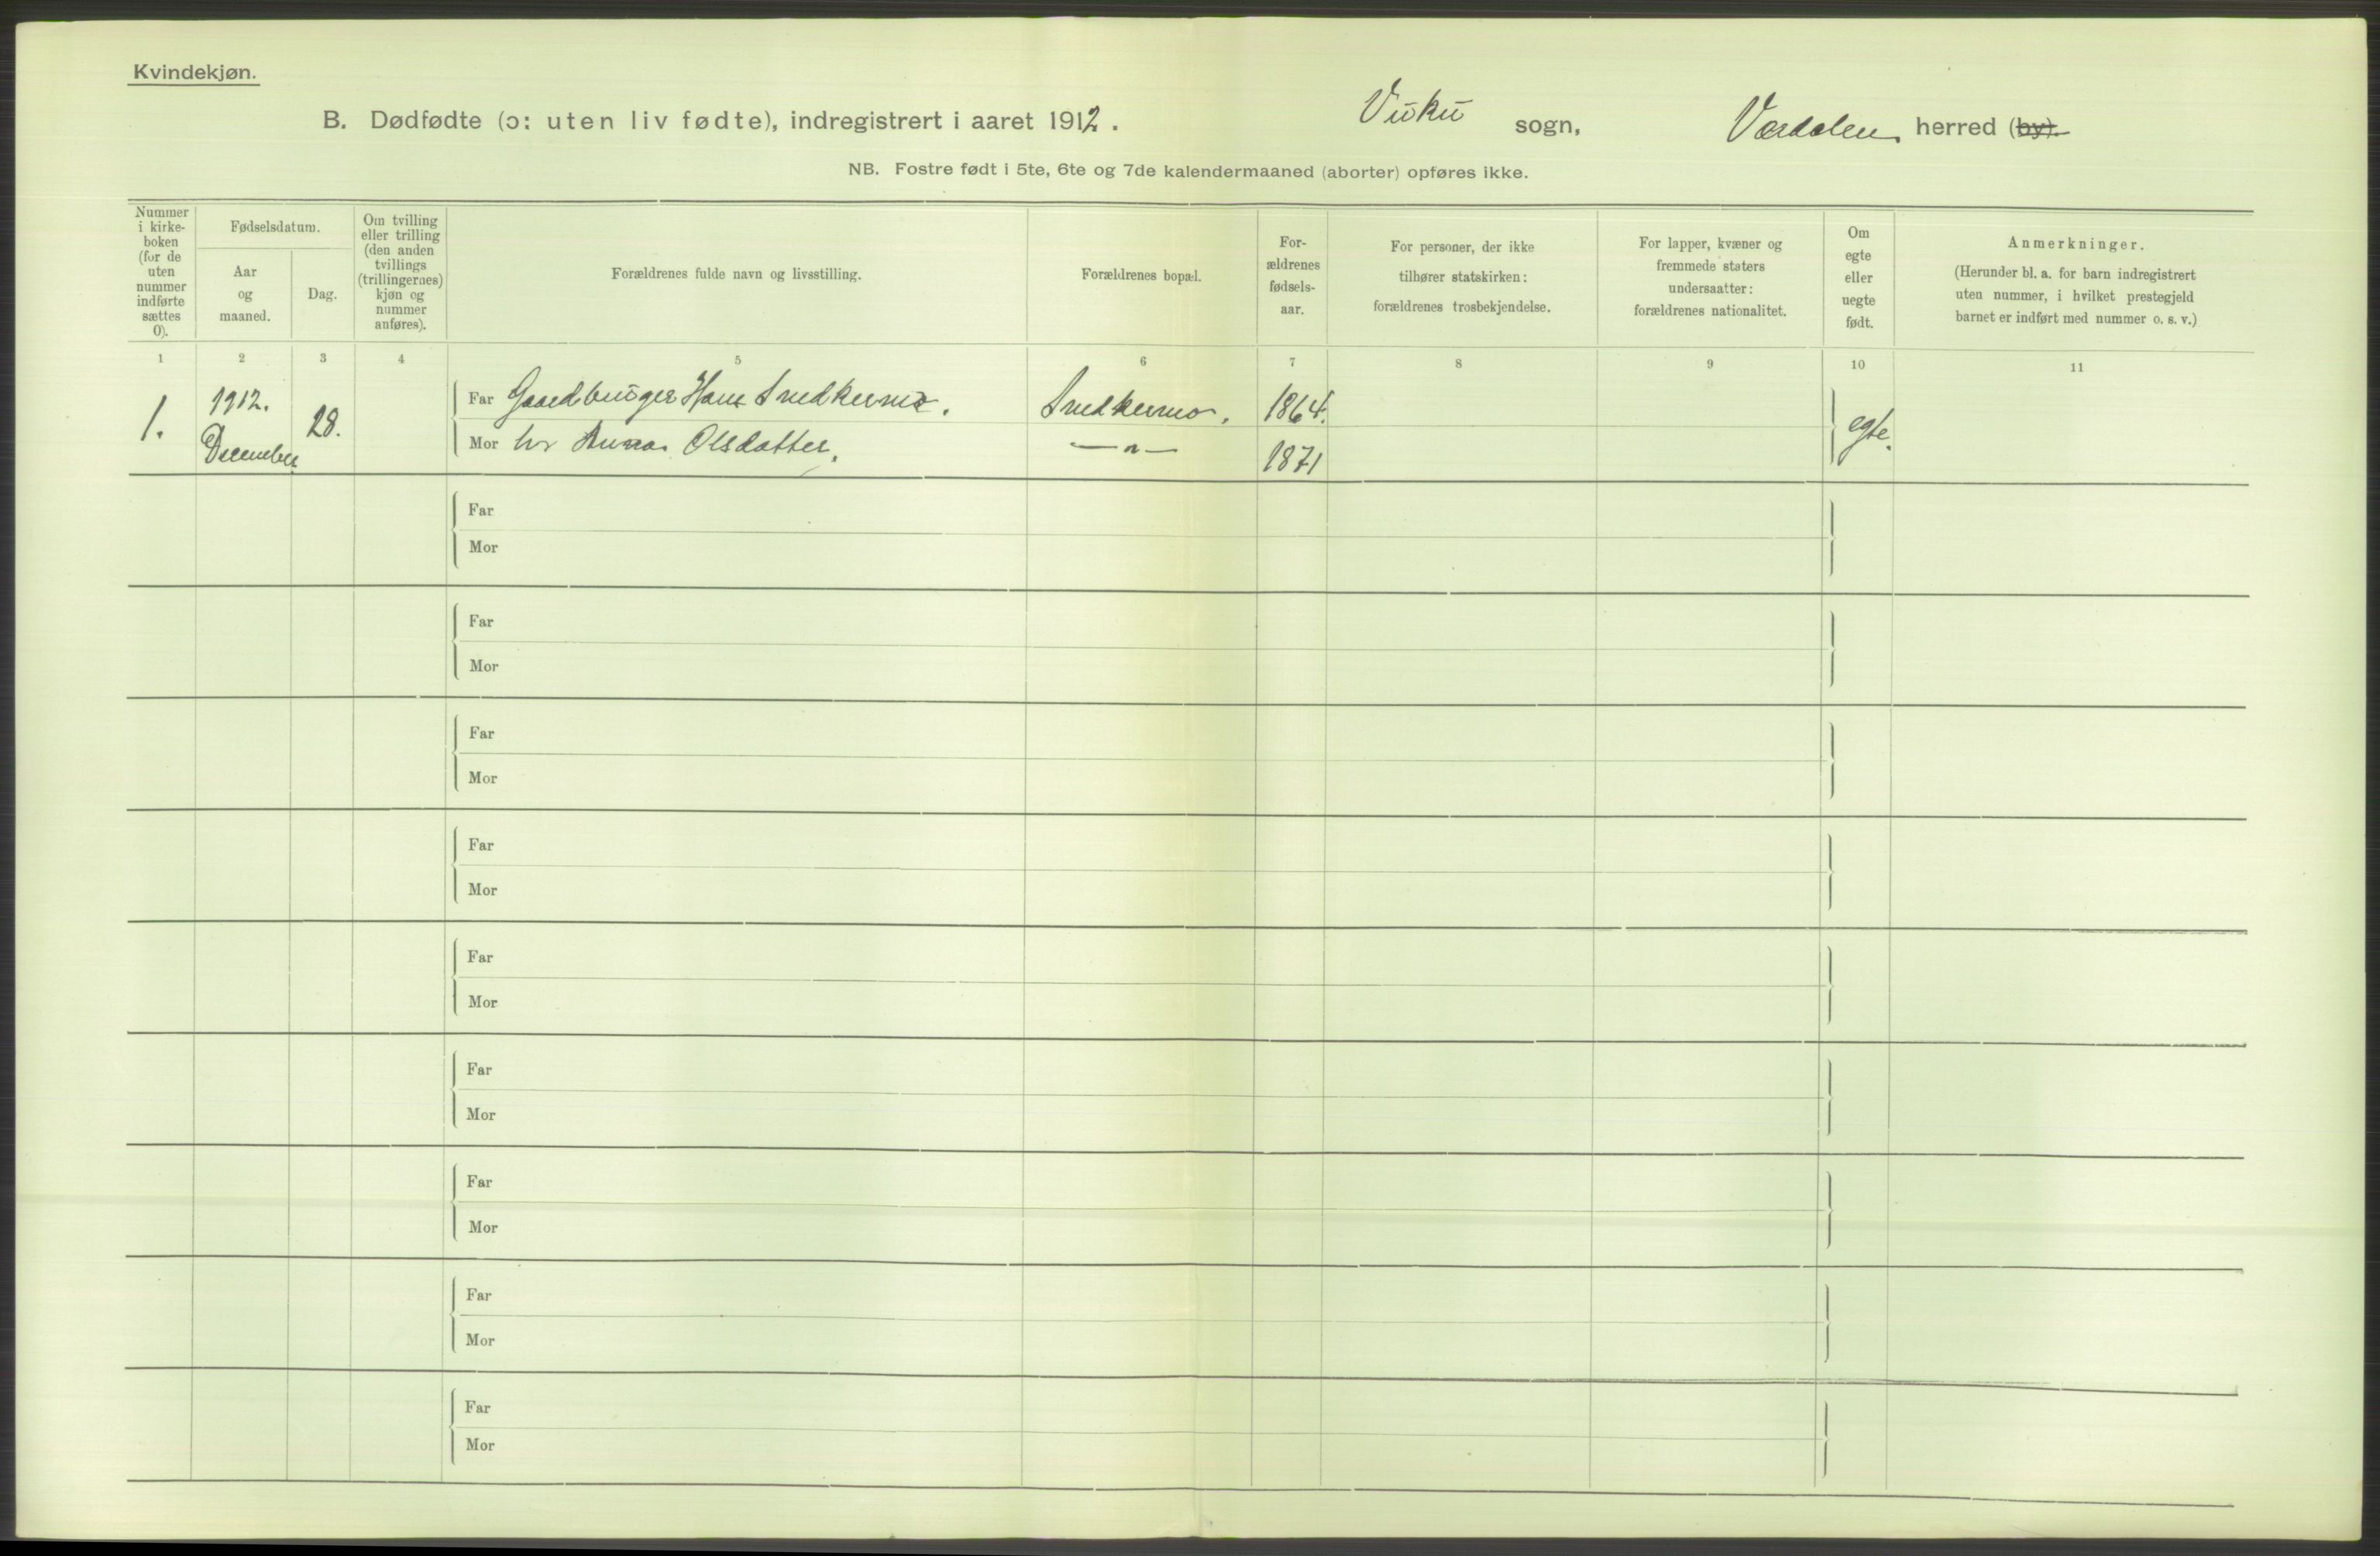 Kvindekjøn.
B. Dødfødte (ɔ: uten liv fødte), indregistrert i aaret 1912. Vuku sogn, Værdalen herred (by).
NB. Fostre født i 5te, 6te og 7de kalendermaaned (aborter) opføres ikke.
Nummer
i kirke-
boken
(for de
uten
nummer
indførte
sættes
0).
Fødselsdatum.
Aar
og
maaned.
Dag.
Om tvilling
eller trilling
(den anden
tvillings
(trillingernes)
kjøn og
nummer
anføres).
Forældrenes fulde navn og livsstilling.
Forældrenes bopæl.
For-
ældrenes
fødsels-
aar.
For personer, der ikke
tilhører statskirken:
forældrenes trosbekjendelse.
For lapper, kvæner og
fremmede staters
undersaatter:
forældrenes nationalitet.
Om
egte
eller
uegte
født.
Anmerkninger.
(Herunder bl. a. for barn indregistrert
uten nummer, i hvilket prestegjeld
barnet er indført med nummer o. s. v.)
1 2 3 4 5 6 7 8 9 10 11
1.
1912.
December
28.
Far Gaardbruger Hans
1864.
Mor Anna Olsdatter.
— " —
1871
egte.
Far
Mor
Far
Mor
Far
Mor
Far
Mor
Far
Mor
Far
Mor
Far
Mor
Far
Mor
Far
Mor